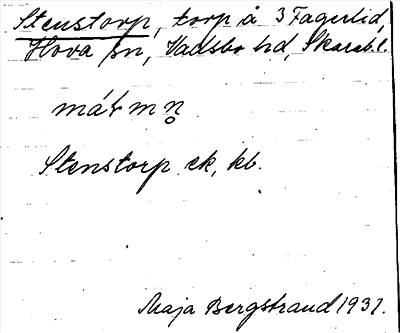 Stenstorp, torp å 3 Fagerlid,
Hova sn, Vadsbo hd, Skarab.l.
Stenstorp ek, kb.
Maja Bergstrand 1931.